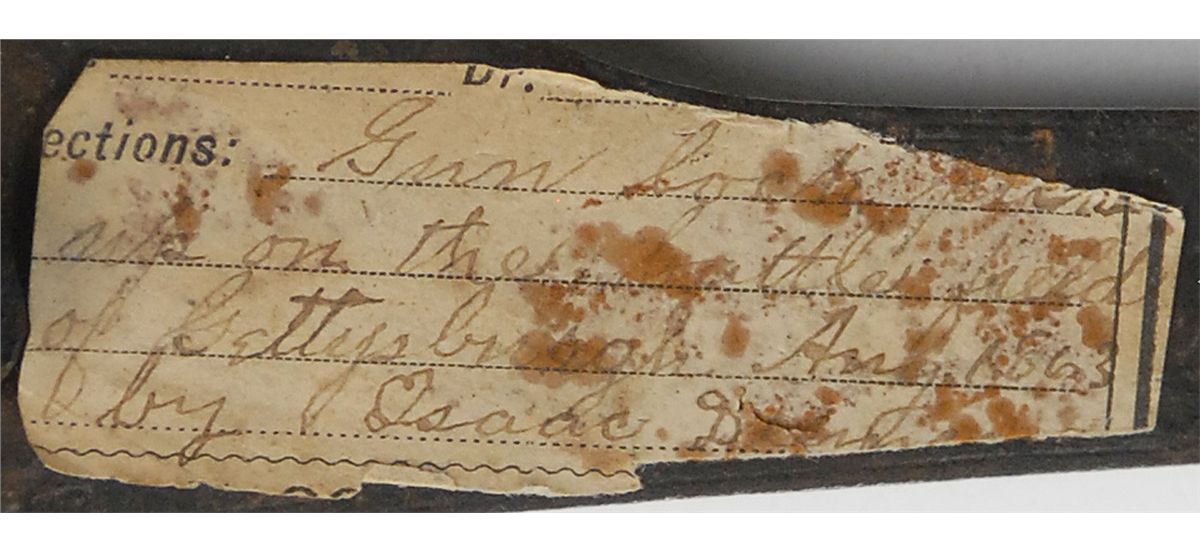 Dr.
ections: Gun lock picked
up on the battle field
of Gettysburgh. Aug. 1863
by Isaac